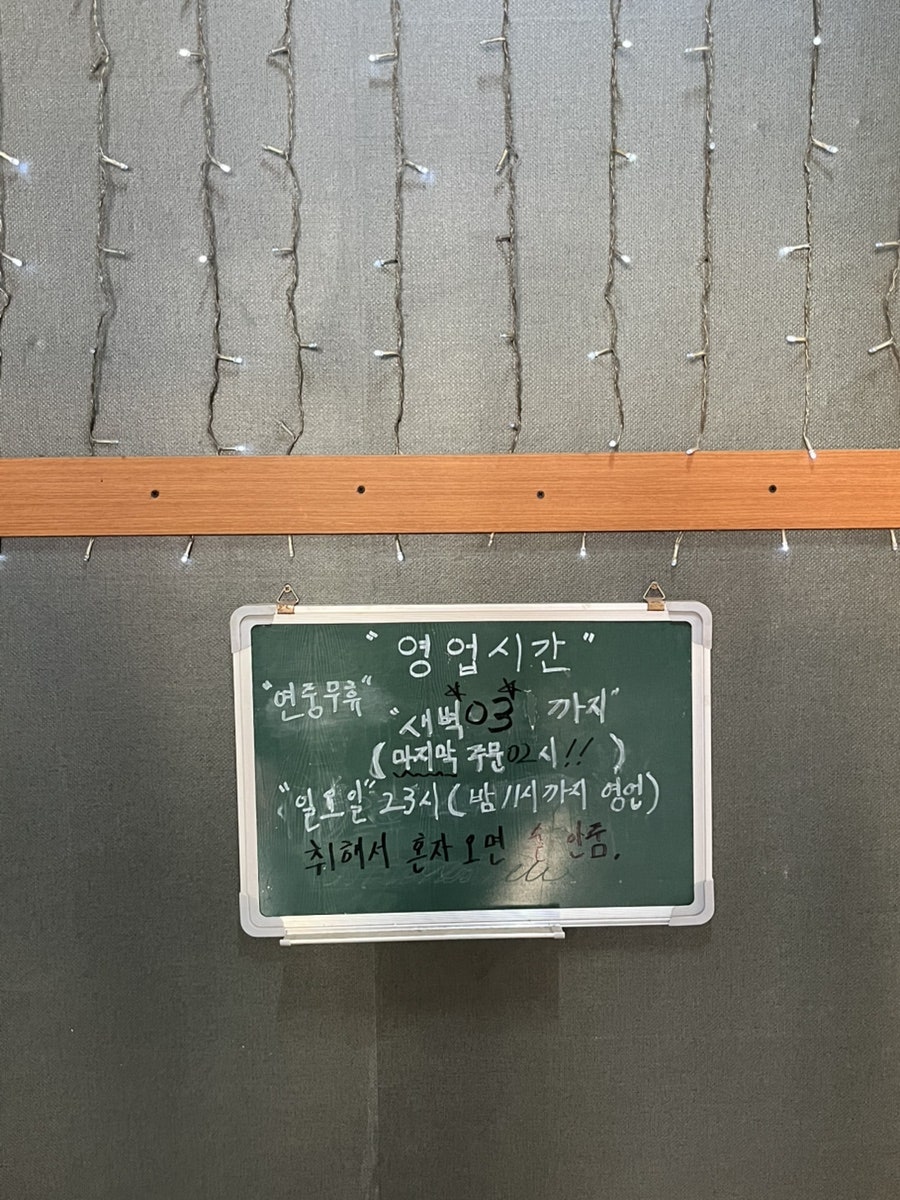 "영업시간"
"연중무휴"
"새벽 03 까지"
(마지막 주문 02시!!)
"일요일" 23시 (밤 11시 까지 영업)
취해서 혼자 오면 술 안줌.